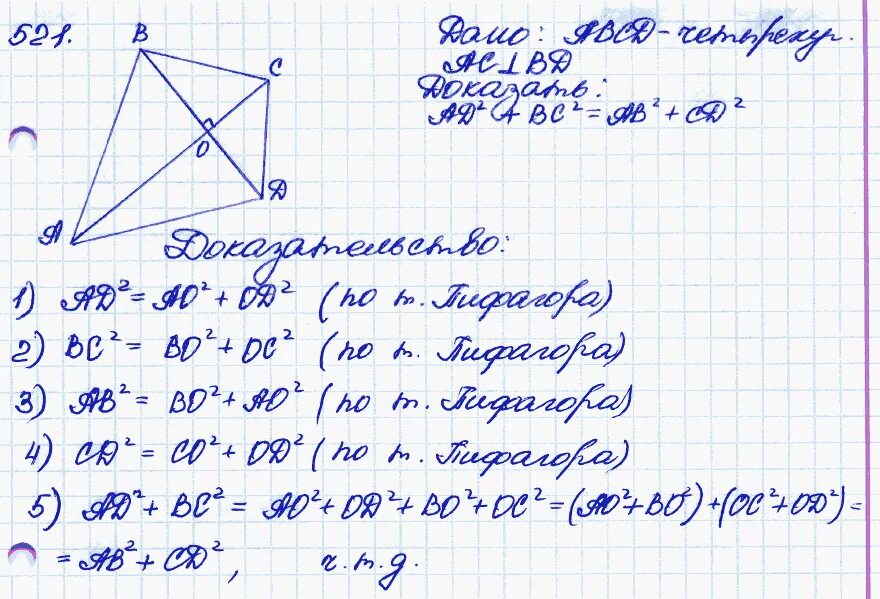 521.
Дано: ABCD - четырехуг.
AC⊥BD
Доказать:
AD² + BC² = AB² + CD²
B
C
O
D
A
Доказательство:
1) AD² = AO² + OD² (по т. Пифагора)
2) BC² = BO² + OC² (по т. Пифагора)
3) AB² = BO² + AO² (по т. Пифагора)
4) CD² = CO² + OD² (по т. Пифагора)
5) AD² + BC² = AO² + OD² + BO² + OC² = (AO² + BO²) + (OC² + OD²) =
= AB² + CD², ч.т.д.